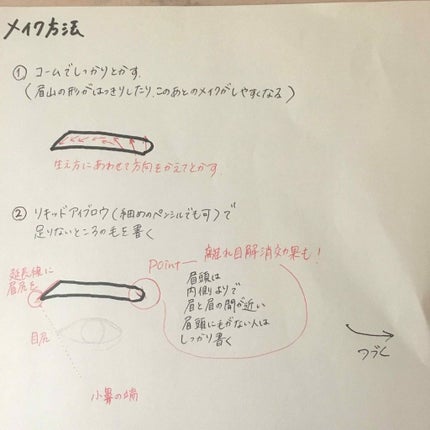 メイク方法
① コームでしっかりとかす.
(眉山の形がはっきりしたり、このあとのメイクがしやすくなる)
生え方にあわせて方向をかえてとかす
② リキッドアイブロウ(細めのペンシルでも可)で
足りないところの毛を書く
point― 離れ目解消効果も!
延長線に
眉尻を
眉頭は
内側よりで
眉と眉の間が近い
眉頭に毛がない人は
しっかり書く
目尻
小鼻の端
つづく